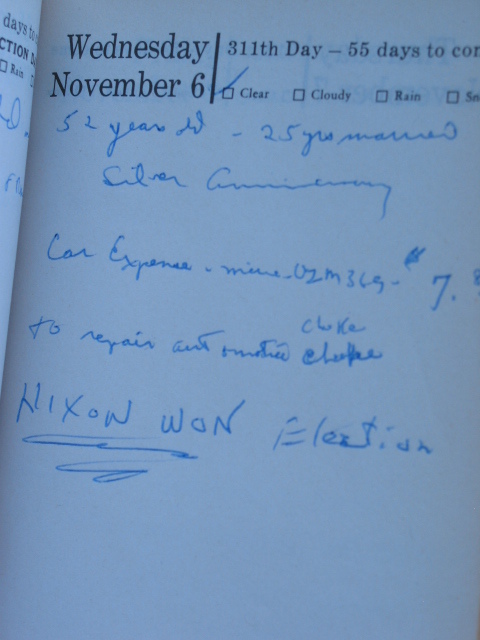 days to
CTION
Rain
Wednesday
November 6
311th Day – 55 days to con
Clear Cloudy Rain Sn
52 years old - 25 yrs married
Silver Anniversary
Car Expense - mine - UZM369 - # 7.
choke
to repair automatic choke
NIXON WON Election